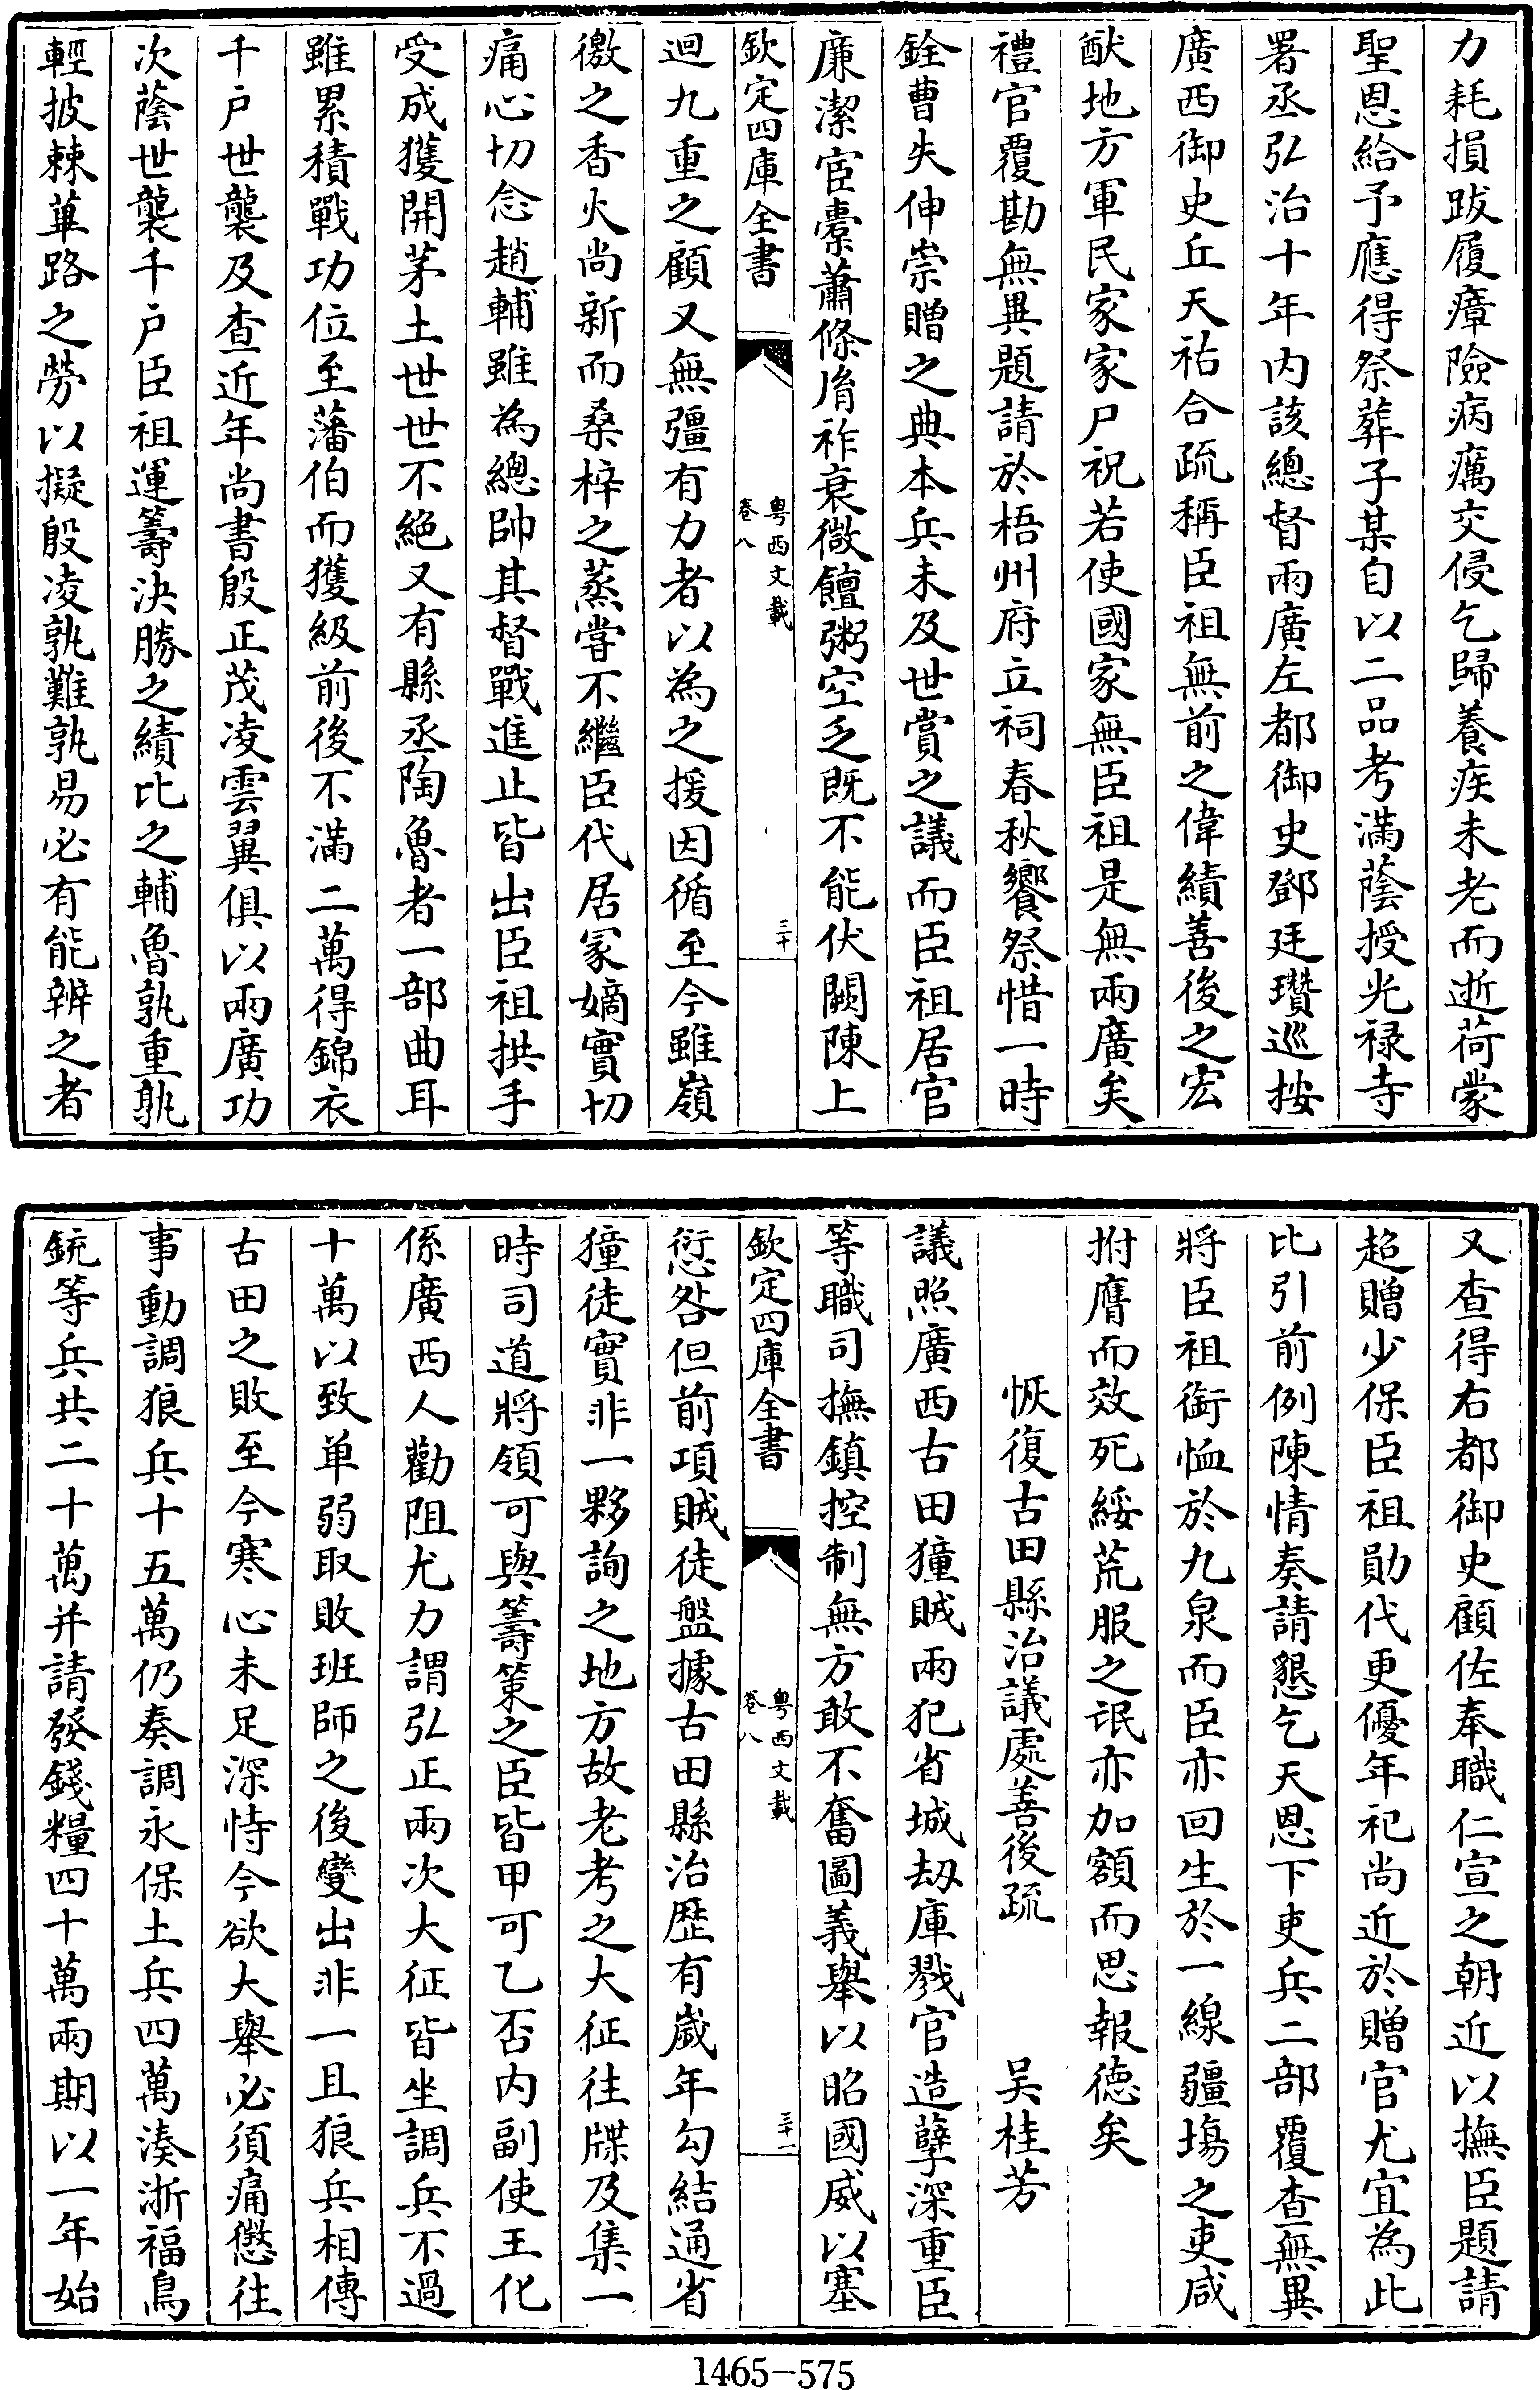 力耗損跋履瘴險病癘交侵乞歸養疾未老而逝荷蒙
聖恩給予應得祭葬子某自以二品考滿蔭授光禄寺
署丞弘治十年内該總督兩廣左都御史鄧廷瓚巡按
廣西御史丘天祐合疏稱臣祖無前之偉績善後之宏
猷地方軍民家家尸祝若使國家無臣祖是無兩廣矣
禮官覆勘無異題請於梧州府立祠春秋饗祭惜一時
銓曹失伸崇贈之典本兵未及世賞之議而臣祖居官
廉潔宦槖蕭條胤祚衰微饘粥空乏既不能伏闕陳上
欽定四庫全書
粤西文載
卷八
三十
迴九重之顧又無彊有力者以為之援因循至今雖嶺
徼之香火尚新而桑梓之蒸嘗不繼臣代居冢嫡實切
痛心切念趙輔雖為總帥其督戰進止皆出臣祖拱手
受成獲開茅土世世不絶又有縣丞陶魯者一部曲耳
雖累積戰功位至藩伯而獲級前後不滿二萬得錦衣
千户世襲及查近年尚書殷正茂凌雲翼俱以兩廣功
次蔭世襲千户臣祖運籌決勝之績比之輔魯孰重孰
輕披棘蓽路之勞以擬殷凌孰難孰易必有能辨之者
又查得右都御史顧佐奉職仁宣之朝近以撫臣題請
超贈少保臣祖勛代更優年祀尚近於贈官尤宜為此
比引前例陳情奏請懇乞天恩下吏兵二部覆查無異
將臣祖銜恤於九泉而臣亦回生於一線疆場之吏咸
拊膺而效死綏荒服之氓亦加額而思報徳矣
恢復古田縣治議處善後疏 吴桂芳
議照廣西古田獞賊兩犯省城刼庫戮官造孽深重臣
等職司撫鎮控制無方敢不奮圖義舉以昭國威以塞
欽定四庫全書
粤西文載
卷八
三十一
愆咎但前項賊徒盤據古田縣治歷有嵗年勾結通省
獞徒實非一夥詢之地方故老考之大征往牒及集一
時司道將領可與籌策之臣皆甲可乙否内副使王化
係廣西人勸阻尤力謂弘正兩次大征皆坐調兵不過
十萬以致单弱取敗班師之後變出非一且狼兵相傳
古田之敗至今寒心未足深恃今欲大舉必須痛懲往
事動調狼兵十五萬仍奏調永保土兵四萬湊浙福鳥
銃等兵共二十萬并請發錢糧四十萬兩期以一年始
1465-575